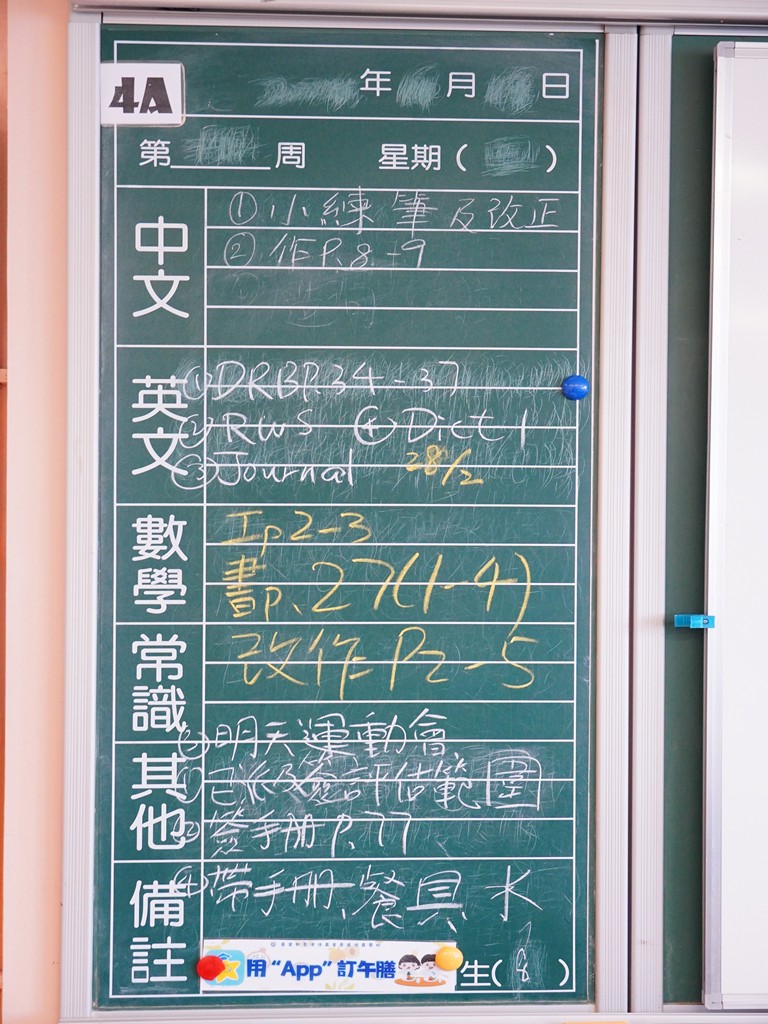 4A
年 月 日
第 周 星期( )
中文
①小練筆及改正
②作P.8-9
英文
①DRBP.34-37
②RWS ④Dict 1
③Journal 28/2
數學
Ip2-3
書p.27(1-4)
常識
改作P2-5
③明天運動會
其他
①已派及簽評估範圍
②簽手冊P.77
備註
④帶手冊、餐具、水
用“App”訂午膳
生(8)